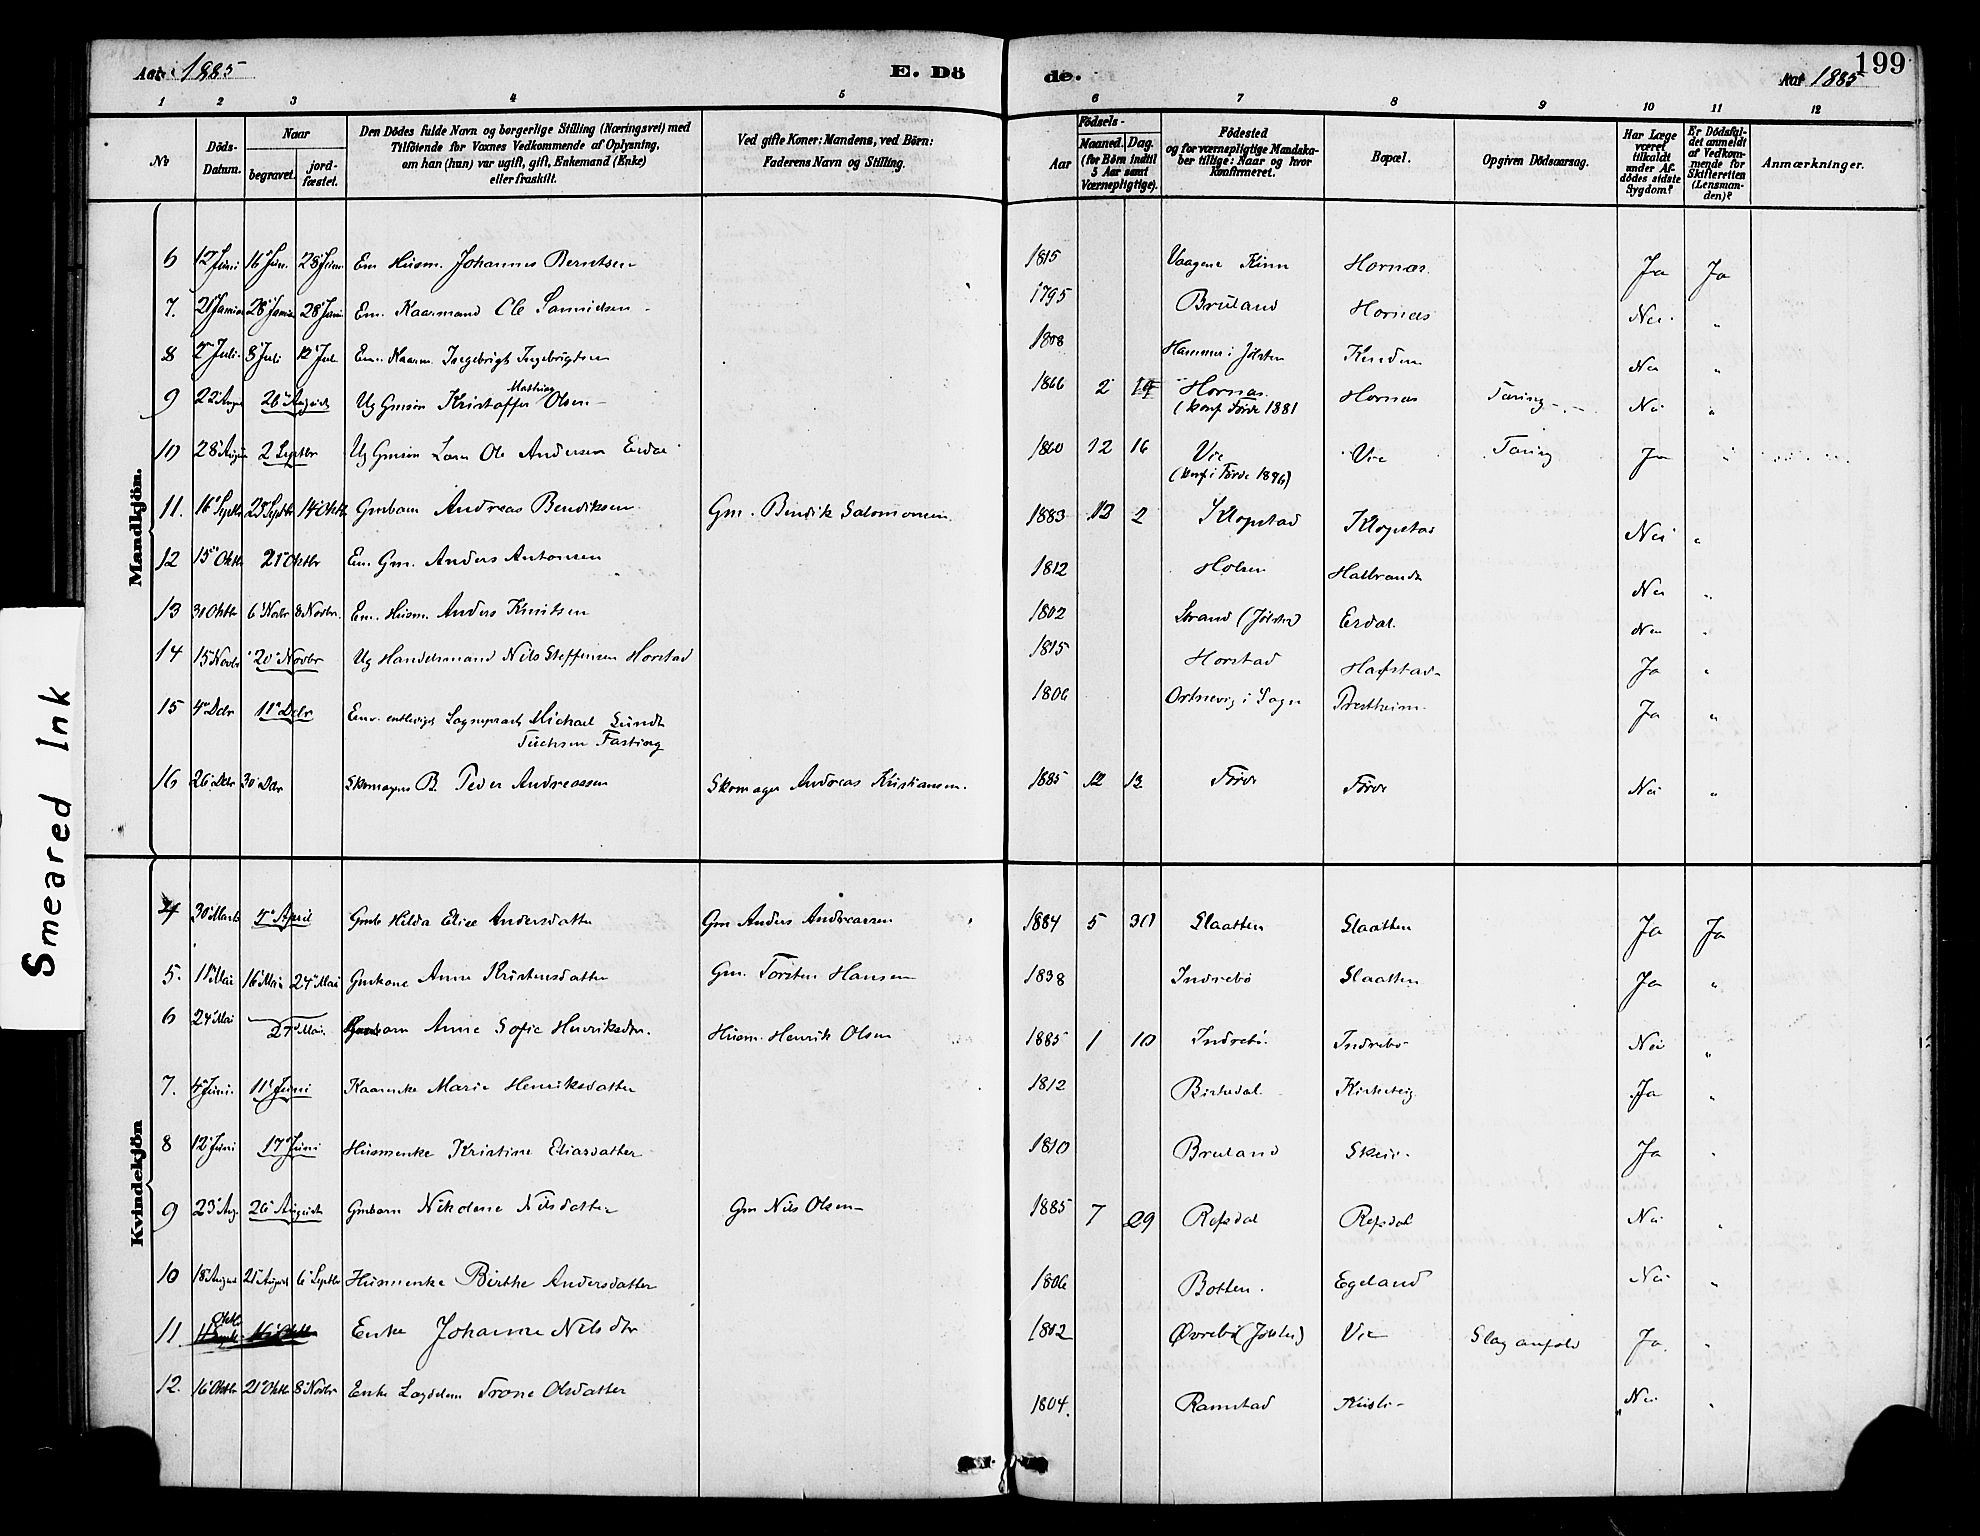 Smeared Ink
Aar 1885
E. Dö
de.
199
Aar 1885
1 2 3 4 5 6 7 8 9 10 11 12
No
Döds-Datum.
Naar
begravet.
jord-fæstet.
Den Dödes fulde Navn og borgerlige Stilling (Næringsvei) med
Tilföiende for Voxnes Vedkommende af Oplysning,
om han (hun) var ugift, gift, Enkemand (Enke)
eller fraskilt.
Ved gifte Koner: Mandens, ved Börn:
Faderens Navn og Stilling.
Födsels-
Aar
Maaned. Dag.
(for Börn indtil
5 Aar samt
Værnepligtige).
Födested
og for værnepligtige Mandska-
ber tillige: Naar og hvor
Konfirmeret.
Bopæl.
Opgiven Dödsaarsag.
Har Læge
været
tilkaldt
under Af-
dödes sidste
Sygdom?
Er Dödsfal-
det anmeldt
af Vedkom-
mende for
Skifteretten
(Lensman-
den)?
Anmærkninger.
Mandkjön.
6 12 Juni 16 Jun. 28 Juni Em Husm. Johannes Berntsen 1815 Vaagene Kinn Hornæs. Ja Ja
7. 21 Juni 28 Juni 28 Juni Em. Kaarmand Ole Samuelsen 1795 Bruland Hornæs Nei "
8 2 Juli 8 Juli 12 Jul Em. Kaarm. Ingebrigt Ingebrigtsen 1808 Hammer i Jølster Nei "
9 22 Augu 26 August Ug Gmsøn Kristoffer Mathias Olsen 1866 2 Hornæs. Hornæs Tæring Nei "
(konf Førde 1881
10 28 August 2 Septbr Ug Gmsøn Lars Ole Andersen Erdal 1860 12 16 Vie Vie Tæring Ja "
(konf i Førde 1876)
11. 16 Septbr 23 Septbr 14 Oktb Gmbarn Andreas Bendiksen Gm. Bendik Salomonsen 1883 2 Klopstad Klopstad Nei "
12 15 Oktb 21 Oktbr Em. Gm. Anders Antonsen 1812 Holsen Halbrandt Nei "
13 31 Oktb 6 Novbr 8 Novbr. Em. Husm. Anders Knutsen 1802 Strand (Jølster) Erdal. Nei "
14 15 Novbr 20 Novbr Ug Handelsmand Nils Steffensen Horstad 1815 Horstad Hafstad Ja "
15 4 Dcbr 11 Dcbr Em. entlediget Sogneprest Michael Sundt 1806 Ortnevig i Sogn Prestheim. Ja "
Tuchsen Fasting
16 26 Dcbr 30 Dcbr Skomagers B. Peder Andreassen Skomager Andreas Kristiansen. 1885 12 Førde Førde Nei "
Kvindekjön
4 30 Marts April Gmb Hilda Elise Andersdatter Gm Anders Andreassen 1884 5 30 Slaatten Slaatten Ja Ja
5. 11 Mai 16 Mai 24 Mai Gmkone Anne Kristensdatter Gm. Torsten Hansen 1838 Indrebø Slaatten Ja "
6 24 Mai 27 Mai. barn Anne Sofie Henriksdtr. Husm. Henrik Olsen 1885 1 10 Indrebø. Indrebø Nei "
7. 4 Juni. 11 Juni Kaarenke Marie Henriksdatter 1812 Birkedal. Kirketeig. Ja "
8 12 Juni 17 Juni Husmenke Kristine Eliasdatter 1810 Bruland Skei Ja "
9 23 Aug. 26 August Gmbarn Nikoline Nilsdatter Gm Nils Olsen 1885 7 29 Refsdal Refsdal Nei "
10 18 August 21 August 6 Septbr Husmenke Birthe Andersdatter 1806 Botten. Egeland Nei "
11 Oktb Enke Johanne Nilsdtr 1802 Øvrebø (Jølster) Vie Slaganfald Ja. "
12. 16 Oktbr 21 Oktb 8 Novbr Enke Lægdslem Trone Olsdatter 1804. Ramstad Nei "